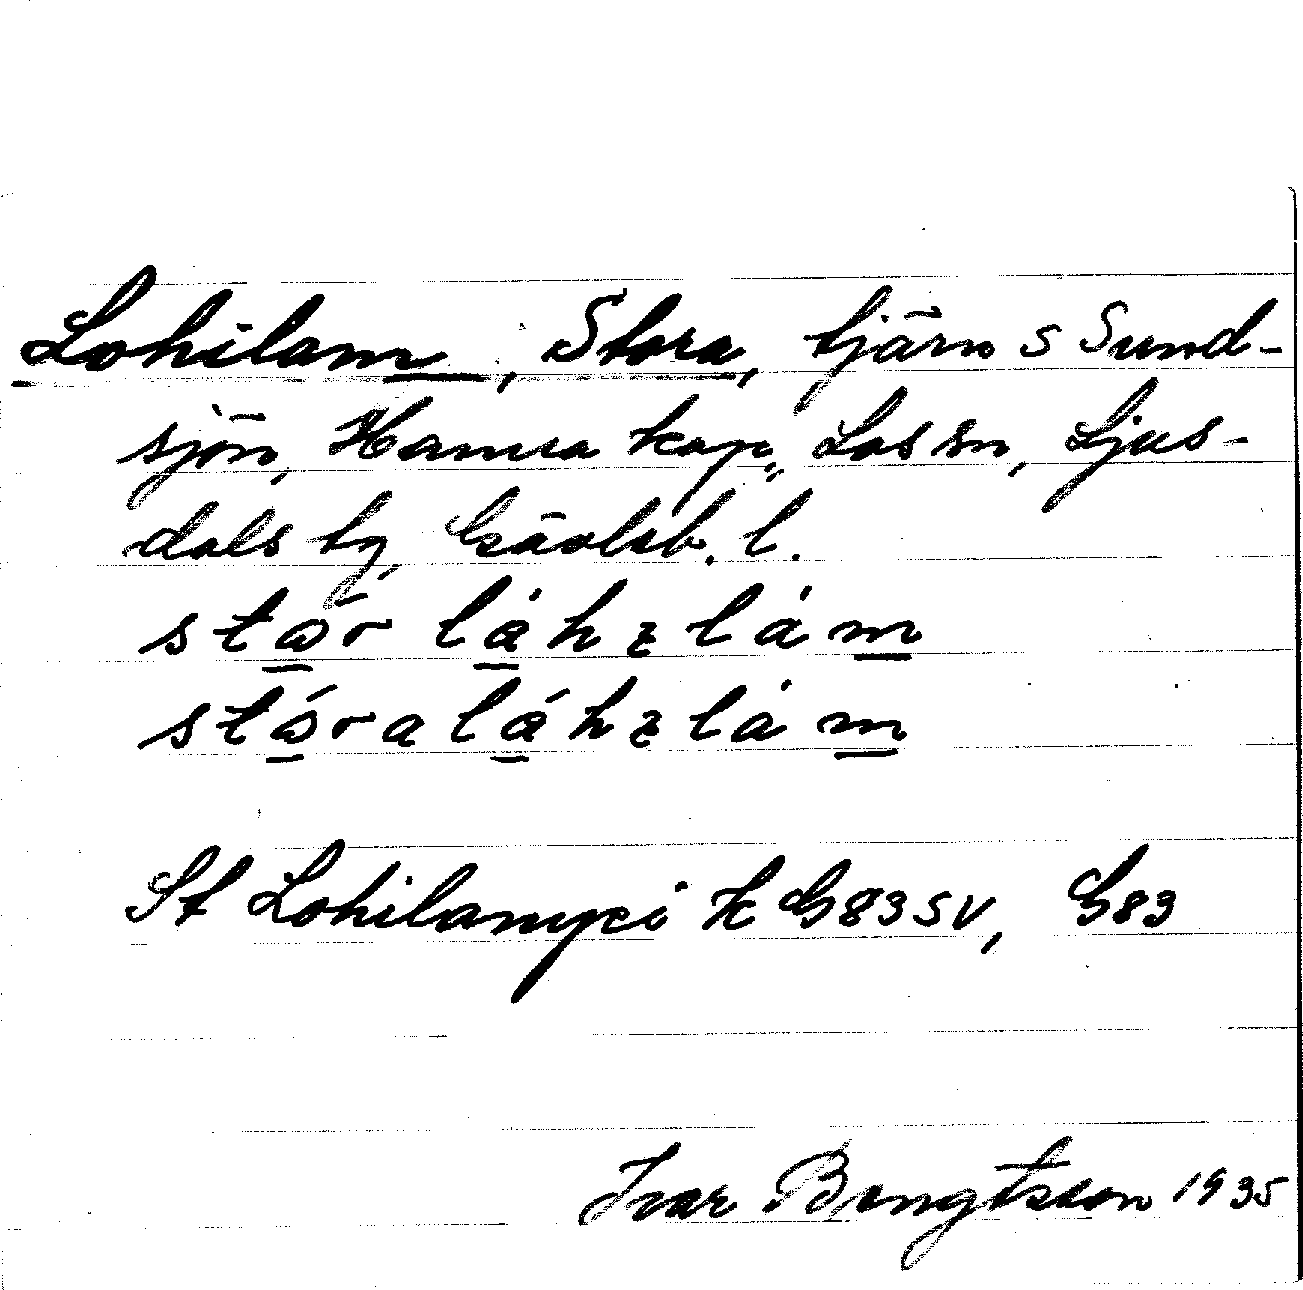 Lohilam, Stora, tjärn S Sund-
sjön, Hamra kap., Los sn, Ljus-
dals tg, Gävleb. l.
stɷ̄r lȧhɩlȧm
stɷ́ralȧ́hɩlȧm
St Lohilampi K G83SV, G83
Ivar Bengtsson 1935